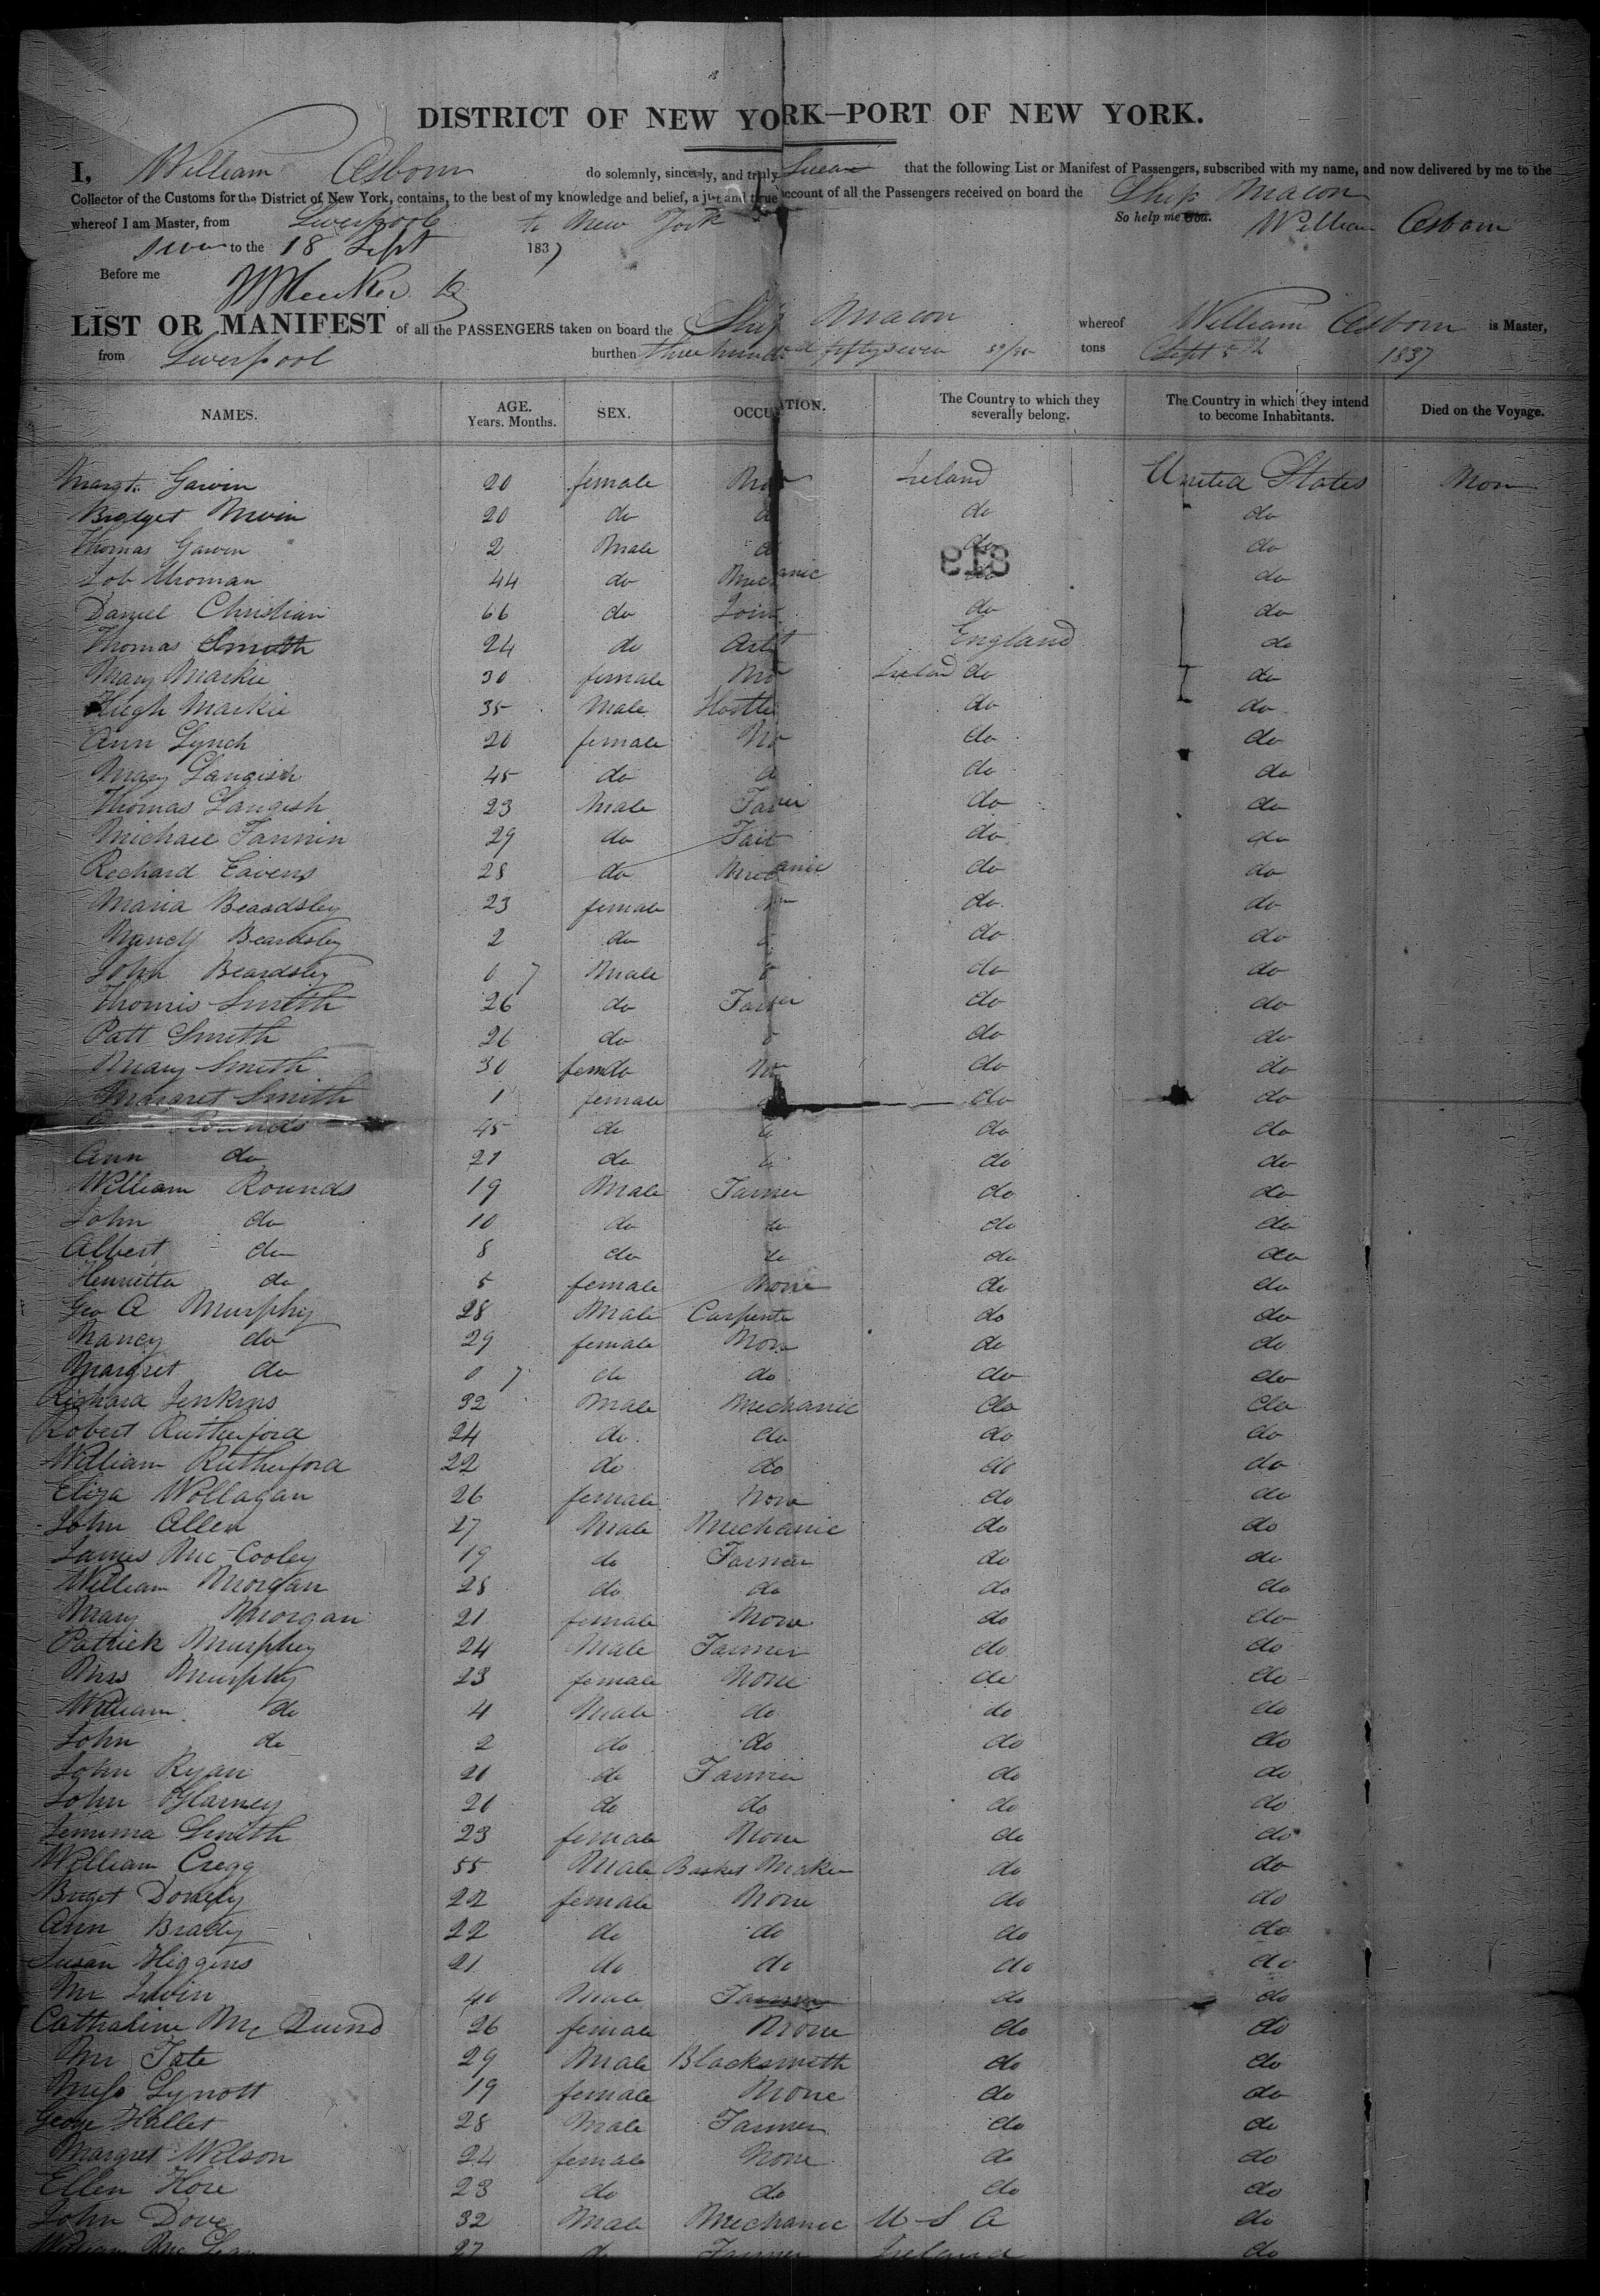 DISTRICT OF NEW YORK—PORT OF NEW YORK.
I, William Osborn do solemnly, sincerely, and truly Swear that the following List or Manifest of Passengers, subscribed with my name, and now delivered by me to the
Collector of the Customs for the District of New York, contains, to the best of my knowledge and belief, a just and true account of all the Passengers received on board the Ship Macon
whereof I am Master, from Liverpool to New York So help me God. William Osborn
Sworn to the 18 Sept 1837
Before me
LIST OR MANIFEST of all the PASSENGERS taken on board the Ship Macon whereof William Osborn is Master,
from Liverpool burthen three hundred fifty seven tons Sept 5th 1837
NAMES. AGE. Years. Months. SEX. OCCUPATION. The Country to which they severally belong. The Country in which they intend to become Inhabitants. Died on the Voyage.
Margt. Gawin 20 female Ireland United States Non
Bridget 20 do do do
Thomas Gawin 2 Male do do
Job 44 do Mechanic do do
Daniel Christian 66 do do do
Thomas Smith 24 do England do
Mary Markie 30 female Ireland do do
Hugh Markie 35 Male do do
Ann Lynch 20 female do do
Mary Langish 45 do do do
Thomas Langish 23 Male do do
Michael Fannin 29 do do do
Richard Eavens 28 do Mechanic do do
Maria Beardsley 23 female do do
Nancy Beardsley 2 do do do
John Beardsley 0 7 Male do do
Thomis Smith 26 do do do
Patt Smith 26 do do do
Mary Smith 30 do do
Margret Smith 1 female do do
Rounds 45 do do do do
Ann do 21 do do do
William Rounds 19 Male Farmer do do
John do 10 do do do do
Albert do 8 do do do do
Henrietta do 5 female None do do
Geo A Murphy 28 Male Carpente do do
Nancy do 29 female Non do do
Margret do 0 7 do do do do
Richard Jenkins 32 Male Mechanic do do
Robert Rutherford 24 do do do do
William Rutherford 22 do do do do
Eliza Wollagan 26 female None do do
John Allen 27 Male Mechanic do do
James McCooley 19 do Farmer do do
William Morgan 28 do do do do
Mary Morgan 21 female None do do
Patrick Murphey 24 Male Farmer do do
Mrs Murphy 23 female None do do
William do 4 Male do do do
John do 2 do do do do
John Ryan 20 do Farmer do do
John 20 do do do do
Jemima Smith 23 female None do do
William Cregg 55 Male Basket Maker do do
Briget 22 female None do do
Ann Brady 22 do do do do
Susan Higgins 21 do do do do
Mr Irwin 40 Male Farmer do do
Cathaline Mc Quind 26 female None do do
Mr Tate 29 Male Blacksmith do do
Miss Lynott 19 female None do do
Geore Hallet 28 Male Farmer do do
Margret Wilson 24 female None do do
Ellen Hore 23 do do do do
John Dove 32 Male Mechanic U S A do
William 27 do Farmer Ireland do